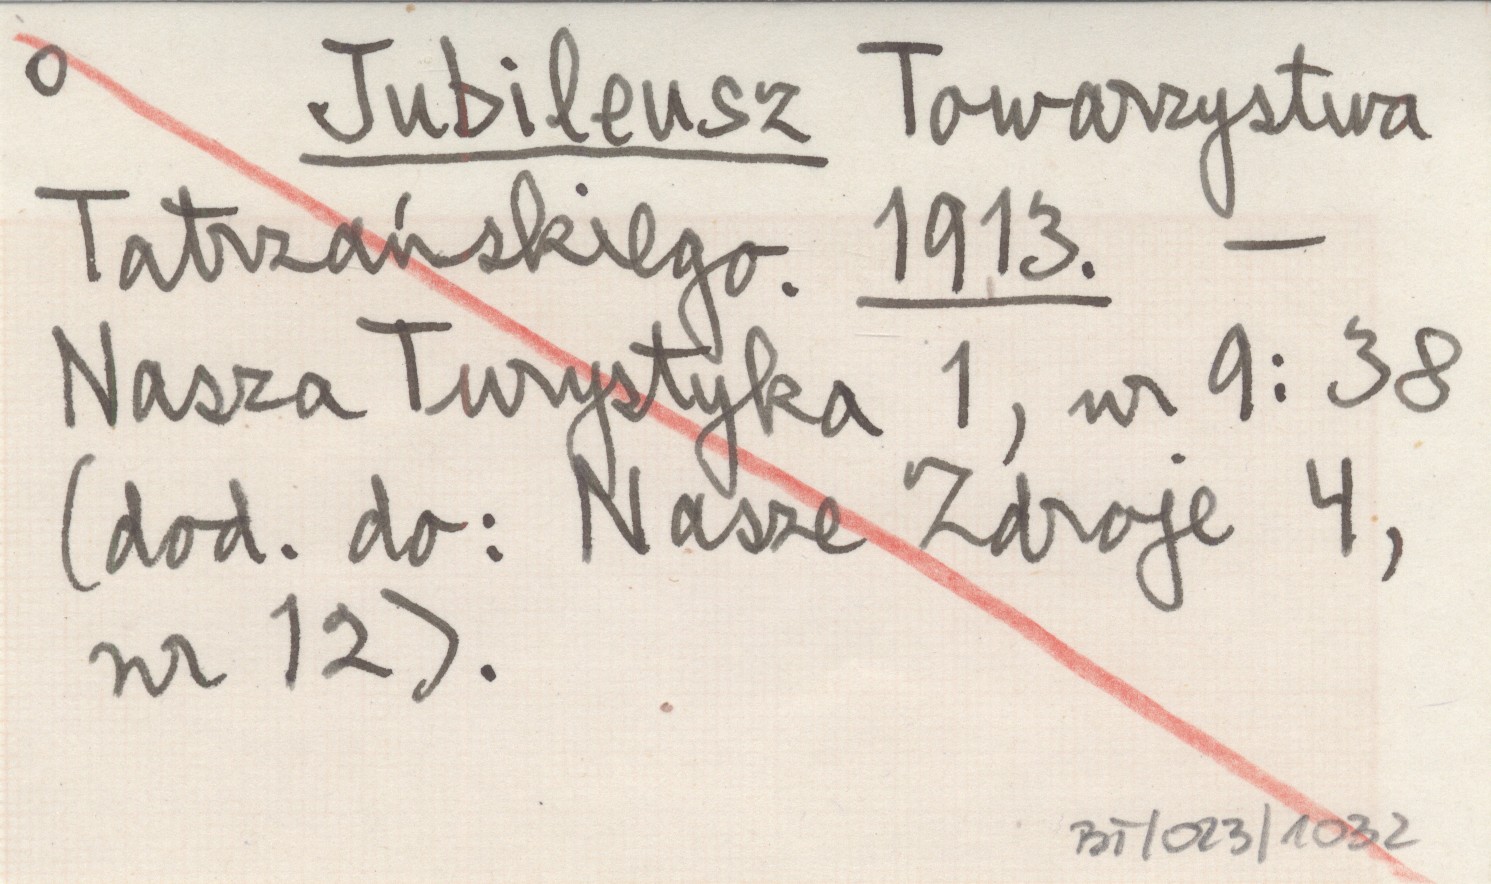 o Jubileusz Towarzystwa
Tatrzańskiego. 1913. —
Nasza Turystyka 1, nr 9: 38
(dod. do: Nasze Zdroje 4,
nr 12).
BT/023/1032